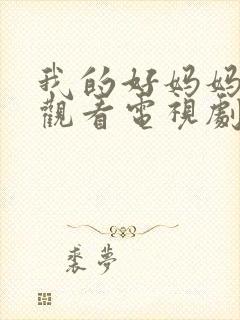 我的好妈妈
觀看電視劇
裘夢